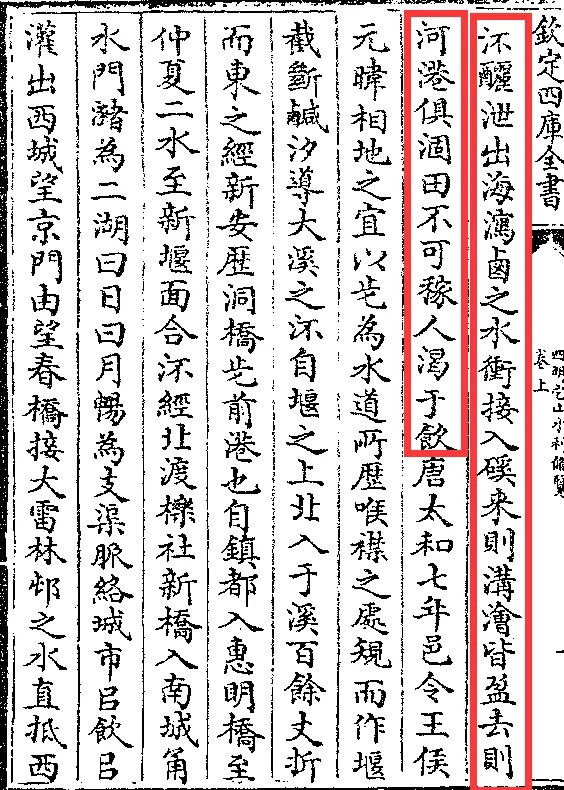 欽定四庫全書
四明它山水利備覽
卷上
㳅釃泄出海瀉鹵之水衝接入磎来則溝澮皆盈去則
河港俱涸田不可稼人渴于飲唐太和七年邑令王侯
元暐相地之宜以此為水道所歴喉襟之處規而作堰
截斷鹹汐導大溪之㳅自堰之上北入于溪百餘丈折
而東之經新安歴洞橋此前港也自鎮都入惠明橋至
仲夏二水至新堰面合㳅經北渡櫟社新橋入南城甬
水門瀦為二湖曰日曰月暢為支渠脈絡城市㠯飲㠯
灌出西城望京門由望春橋接大雷林邨之水直抵西